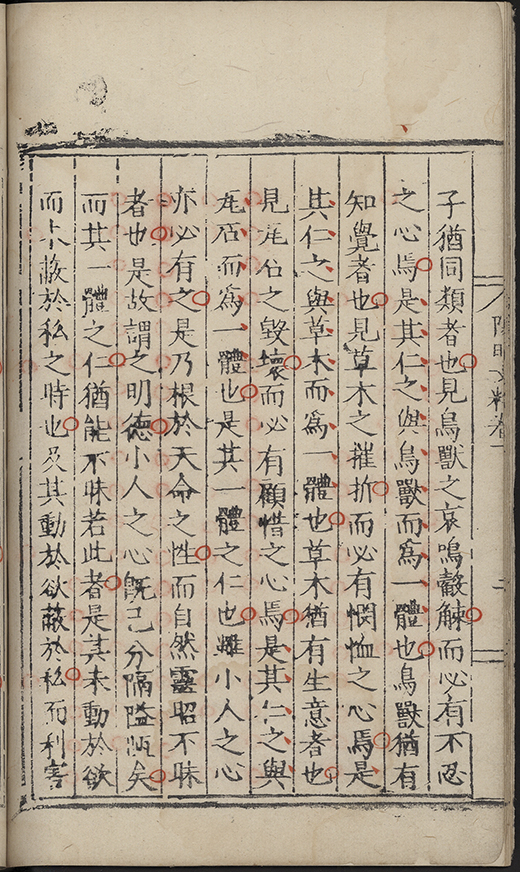 子猶同類者也見鳥獸之哀鳴觳觫而必有不忍
之心焉是其仁之與鳥獸而爲一體也鳥獸猶有
知覺者也見草木之摧折而必有憫恤之心焉是
其仁之與草木而爲一體也草木猶有生意者也
見瓦石之毀壞而必有顧惜之心焉是其仁之與
瓦石而爲一體也是其一體之仁也雖小人之心
亦必有之是乃根於天命之性而自然靈昭不昧
者也是故謂之明德小人之心旣已分隔隘陋矣
而其一體之仁猶能不昧若此者是其未動於欲
而未蔽於私之時也及其動於欲蔽於私而利害
陽明文粹卷一
二